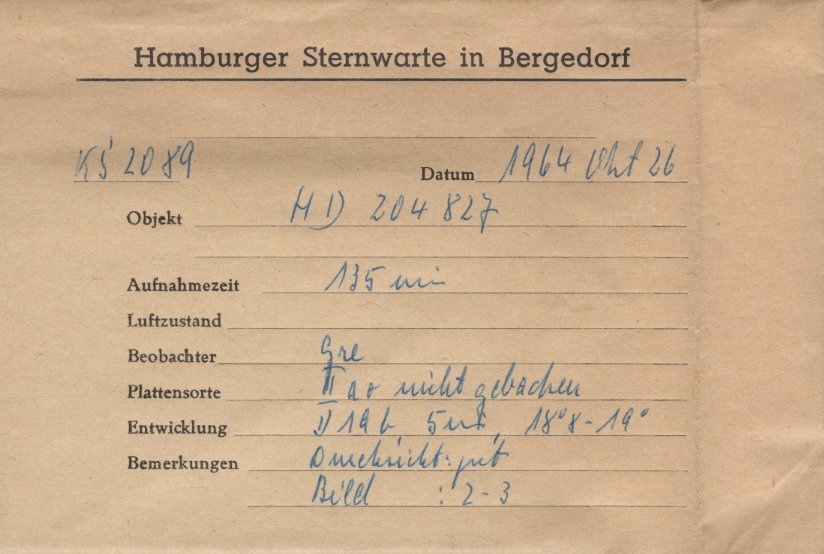 Hamburger Sternwarte in Bergedorf
KS 2089
Datum 1964 Okt 26
Objekt HD 204 827
Aufnahmezeit 135 min
Luftzustand
Beobachter Gre
Plattensorte II a o nicht gebacken
Entwicklung D 19 b 5 , 18°8 - 19°
Bemerkungen Durchsicht: gut
Bild : 2-3